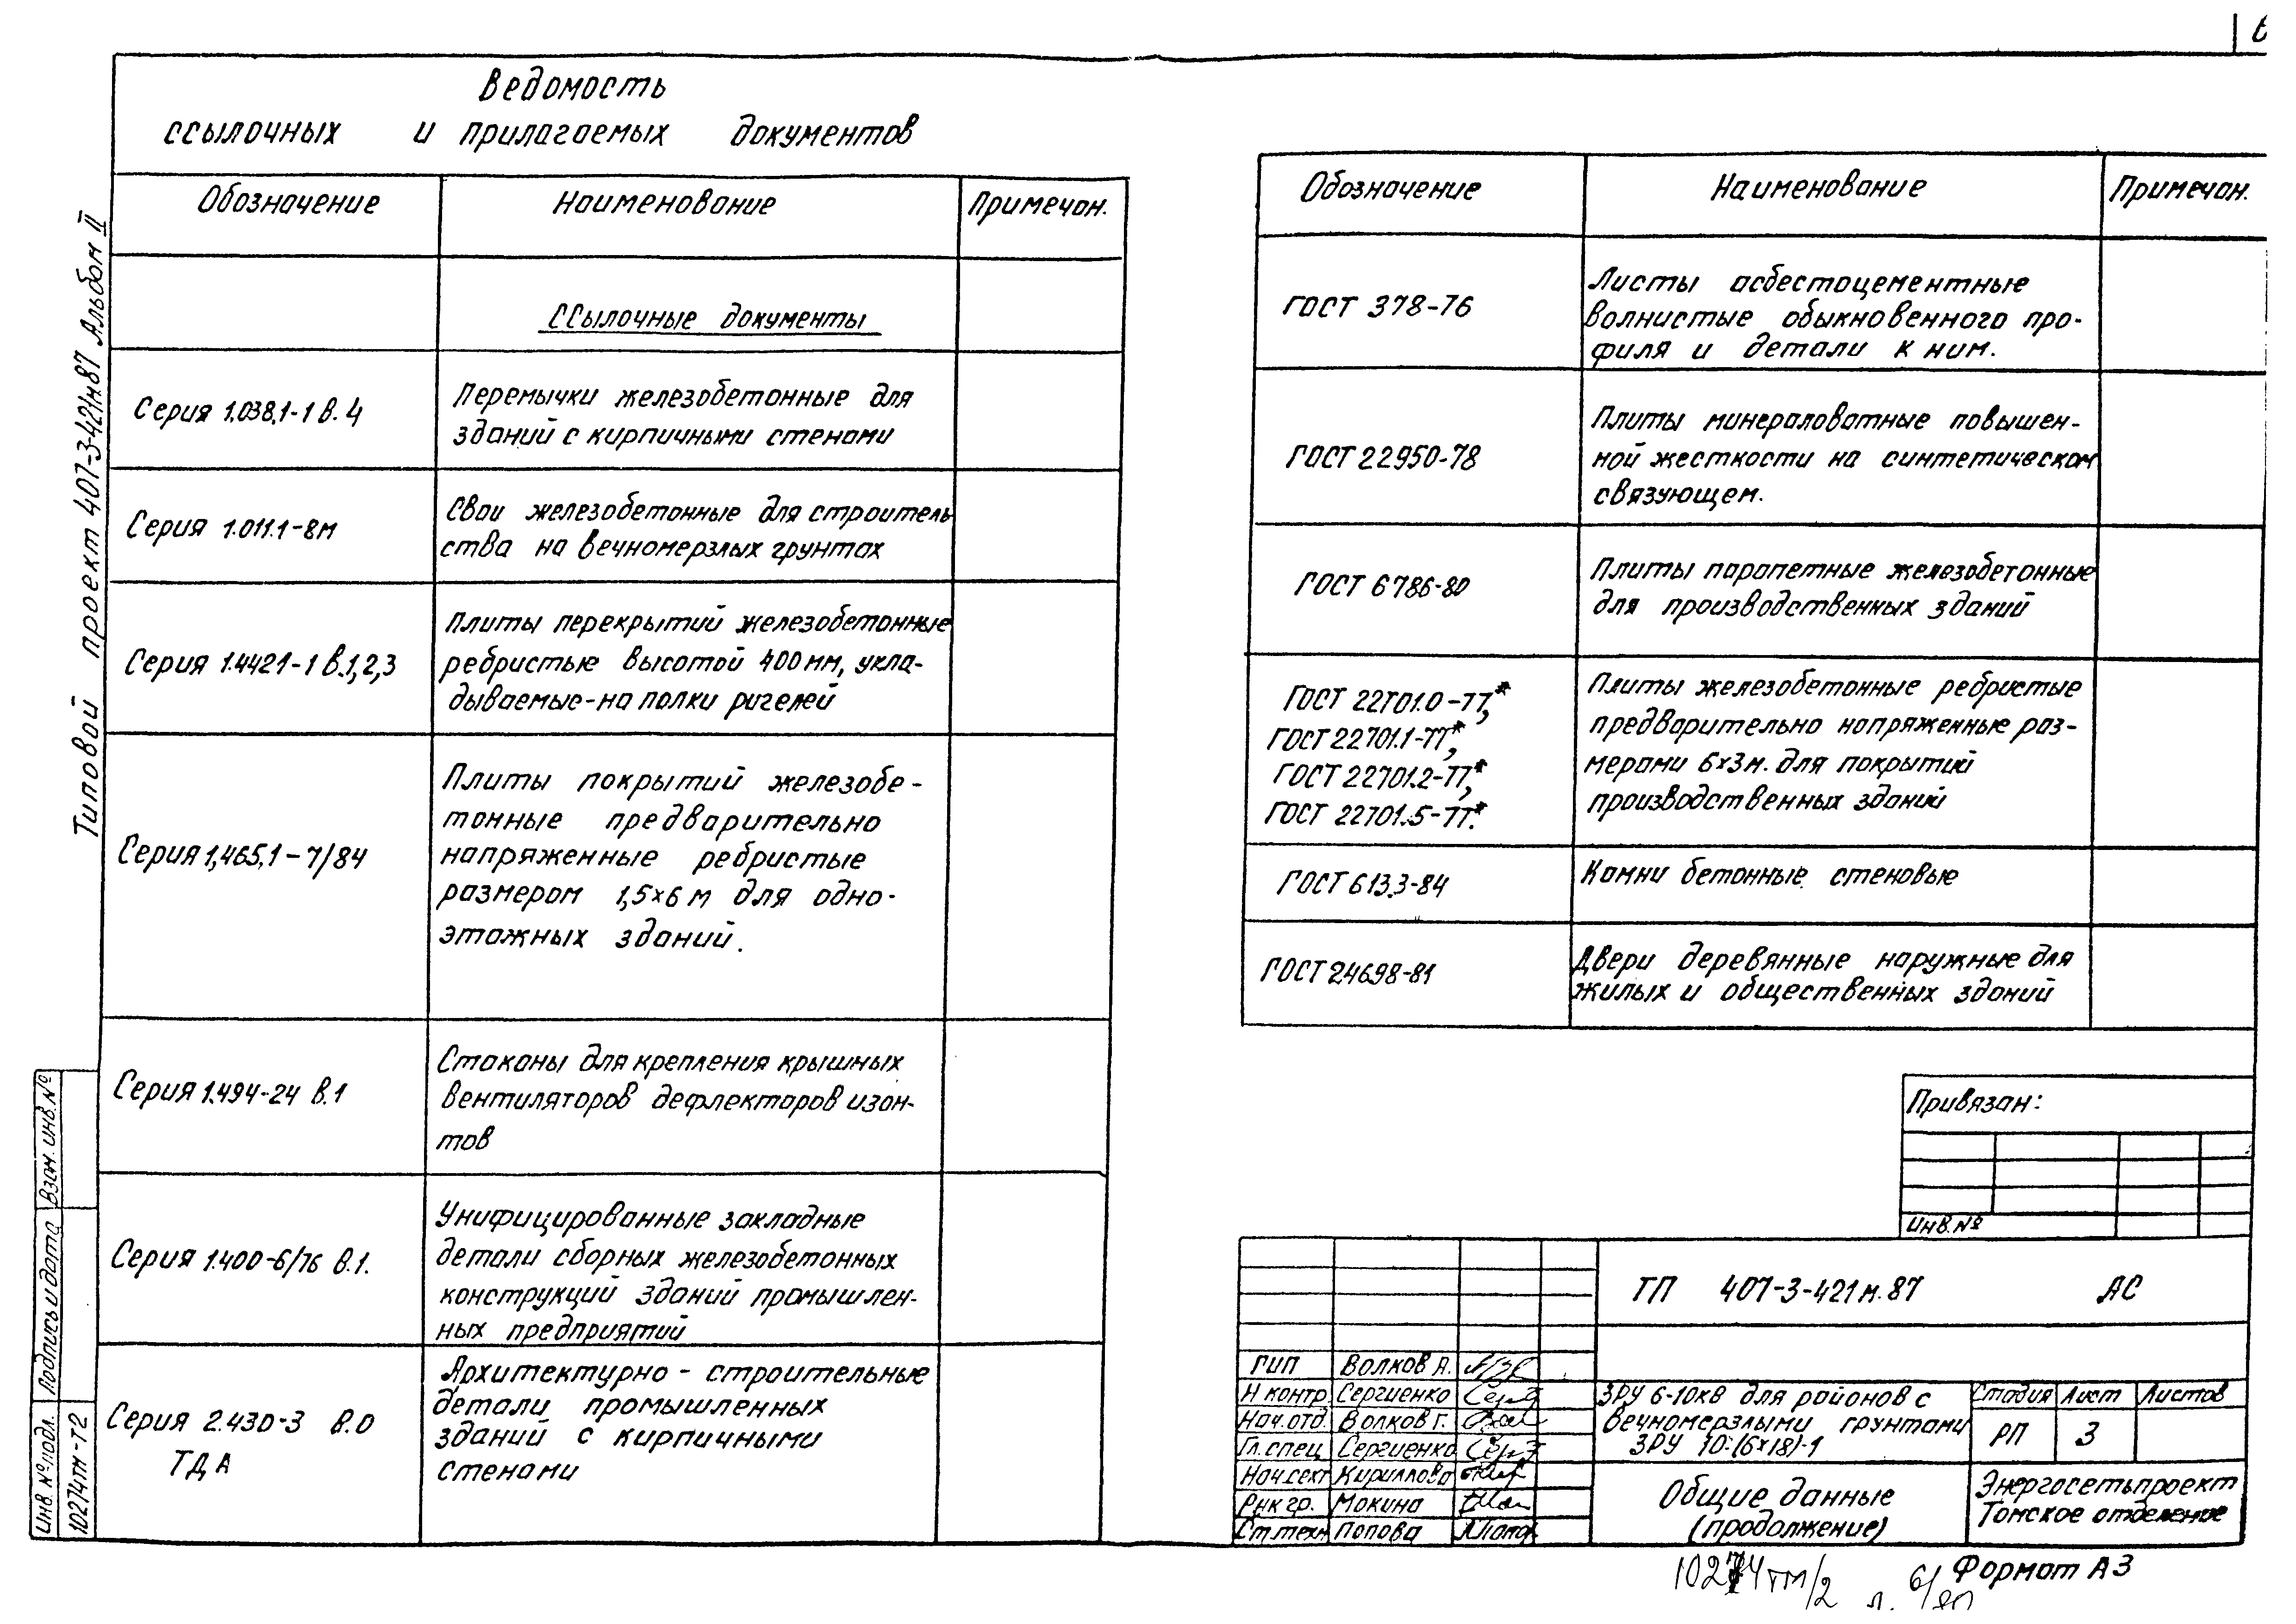 Ведомость
ссылочных и прилагаемых документов
Обозначение Наименование Примечан.
Ссылочные документы
Серия 1.038.1-1 в. 4
Перемычки железобетонные для
зданий с кирпичными стенами
Серия 1.011.1-8м
Сваи железобетонные для строитель
ства на вечномерзлых грунтах
Серия 1.442.1-1 в.1,2,3
Плиты перекрытий железобетонные
ребристые высотой 400 мм, укла-
дываемые-на полки ригелей
Серия 1.465.1-7/84
Плиты покрытий железобе-
тонные предварительно
напряженные ребристые
размером 1,5×6 м для одно-
этажных зданий.
Серия 1.494-24 в.1
Стаканы для крепления крышных
вентиляторов дефлекторов изон-
тов
Серия 1.400-6/76 в.1.
Унифицированные закладные
детали сборных железобетонных
конструкций зданий промышлен-
ных предприятий
Серия 2.430-3 в.0
ТДА
Архитектурно - строительные
детали промышленных
зданий с кирпичными
стенами
Обозначение Наименование Примечан.
ГОСТ 378-76
Листы асбестоцементные
волнистые обыкновенного про-
филя и детали к ним.
ГОСТ 22950-78
Плиты минераловатные повышен-
ной жесткости на синтетическом
связующем.
ГОСТ 6786-80
Плиты парапетные железобетонные
для производственных зданий
ГОСТ 22701.0-77*,
ГОСТ 22701.1-77*,
ГОСТ 22701.2-77*,
ГОСТ 22701.5-77*.
Плиты железобетонные ребристые
предварительно напряженные раз-
мерами 6×3м. для покрытий
производственных зданий
ГОСТ 6133-84
Камни бетонные стеновые
ГОСТ 24698-81
Двери деревянные наружные для
жилых и общественных зданий
Привязан:
Инв.№
ТП 407-3-421м.87 АС
ГИП Волков А.
Н контр Сергиенко
Нач.отд. Волков Г.
Гл.спец Сергиенко
Нач.сект Кириллова
Рук гр. Мокина
Ст.техн Попова
ЗРУ 6-10кВ для районов с
вечномерзлыми грунтами
ЗРУ 10-(6×18)-1
Стадия Лист Листов
РП 3
Общие данные
(продолжение)
Энергосетьпроект
Томское отделение
Формат А3
10274тм/2
л. 6/80
Типовой проект 407-3-421м.87 Альбом II
Взам. инв.№
Подпись и дата
Инв. № подл.
10274тм-т2